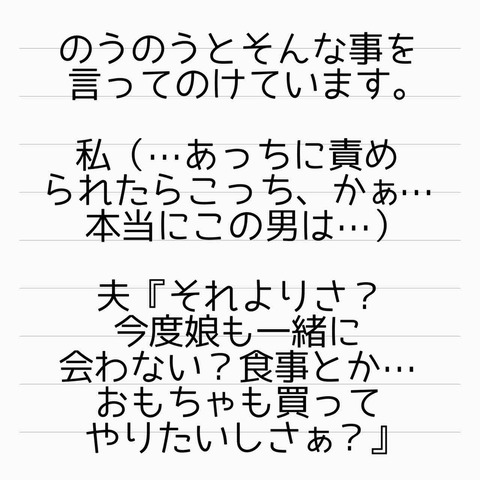 のうのうとそんな事を
言ってのけています。
私（…あっちに責め
られたらこっち、かぁ…
本当にこの男は…）
夫『それよりさ？
今度娘も一緒に
会わない？食事とか…
おもちゃも買って
やりたいしさぁ？』